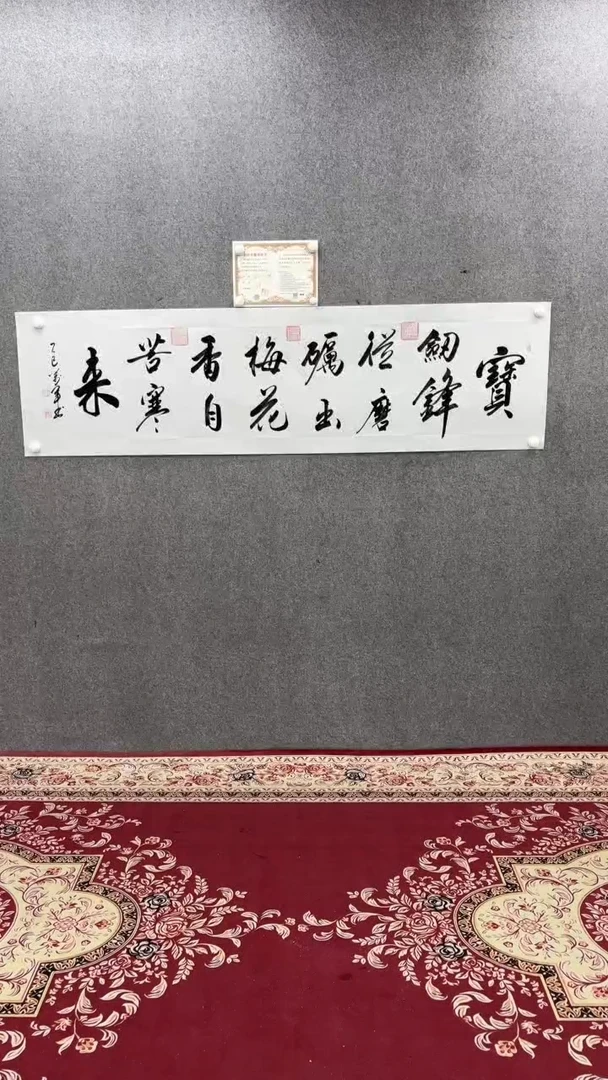 寶
劔鋒
從磨
礪出
梅花
香自
苦寒
来
乙巳